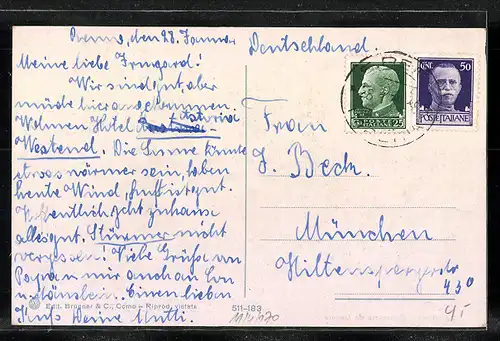 den 28. Januar
Meine liebe Irmgard!
Wir sind gut aber
müde hier angekommen.
Wohnen Hotel Astoria
Westend. Die Sonne könnte
etwas wärmer sein, haben
heute Wind, Luft ist gut.
Hoffentlich geht zuhause
alles gut. Stürmer nicht
vergessen! Viele Grüße von
Papa u. mir auch an
u. Hänschen. Einen lieben
Kuß Deine Mutti.
Edit. Brunner & C., Como - Riprod. vietata
511-183
Deutschland.
Frau
J. Beck.
München
Hiltenspergerstr
43 0
25
CENT. 50
POSTE ITALIANE